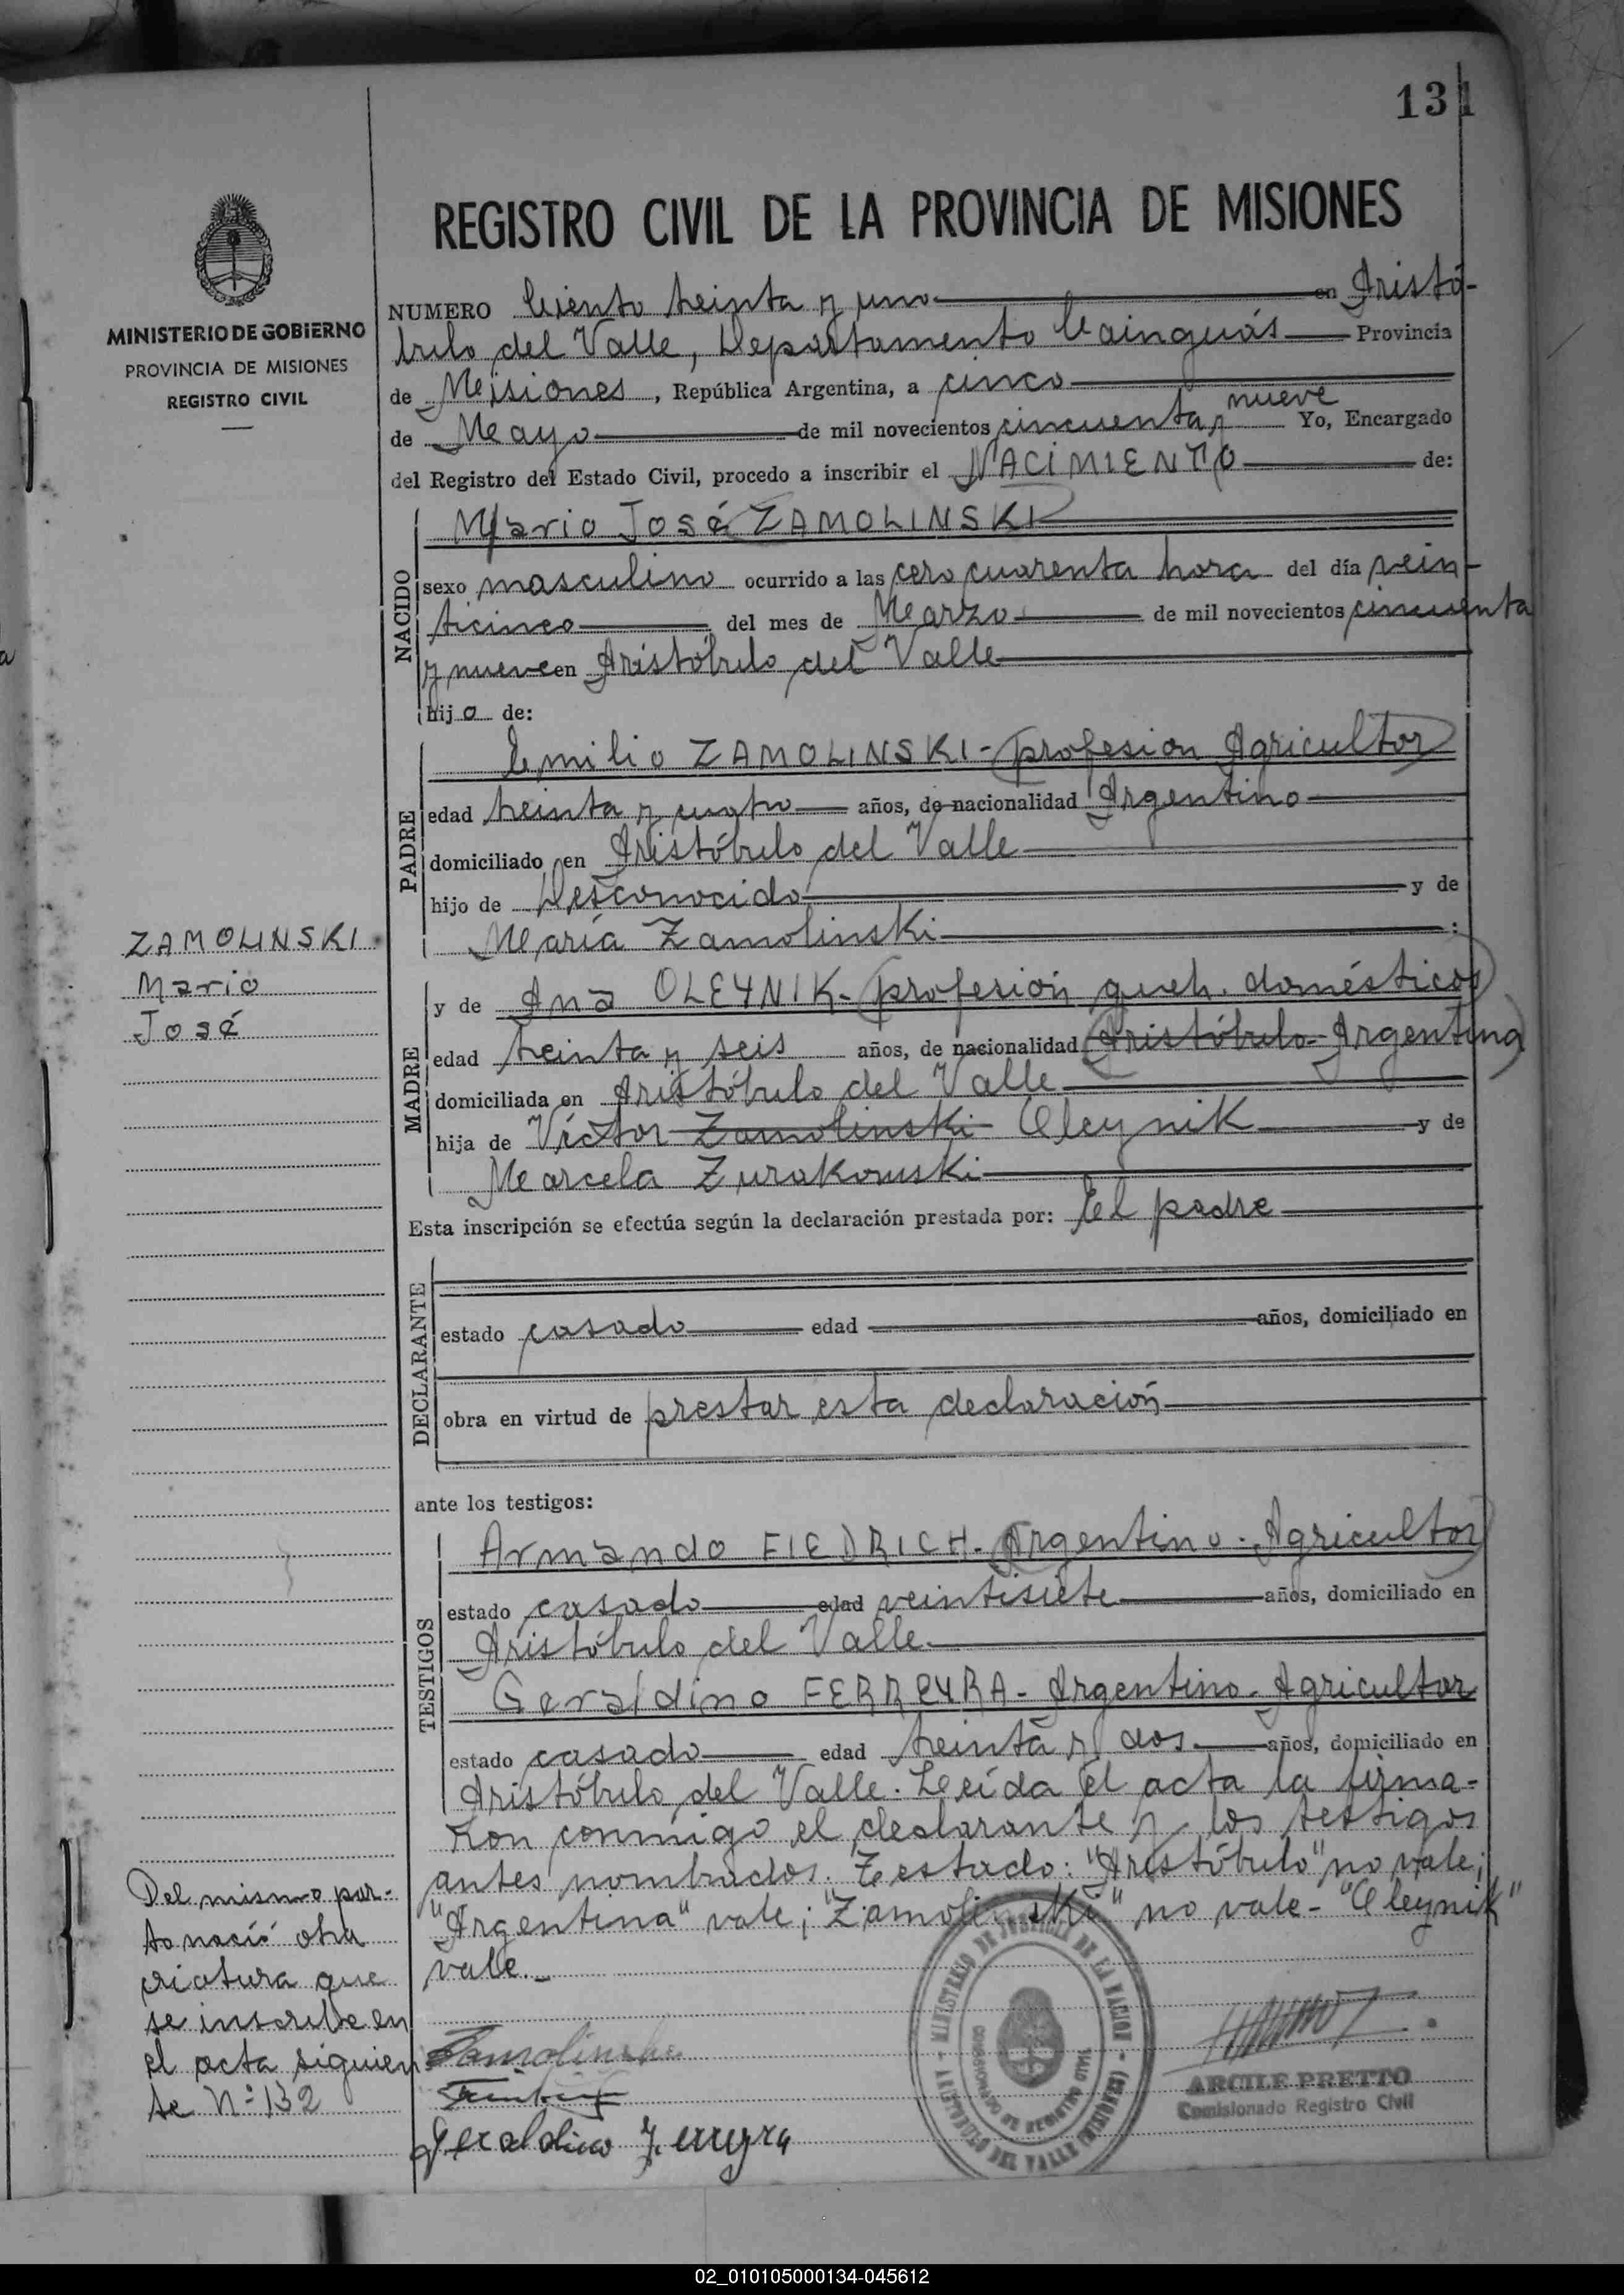 131
REGISTRO CIVIL DE LA PROVINCIA DE MISIONES
MINISTERIO DE GOBIERNO
PROVINCIA DE MISIONES
REGISTRO CIVIL
NUMERO Ciento treinta y uno en Aristó-
bulo del Valle, Departamento Cainguás Provincia
de Misiones, República Argentina, a cinco
de Mayo de mil novecientos cincuenta y nueve Yo, Encargado
del Registro del Estado Civil, procedo a inscribir el NACIMIENTO de:
NACIDO
Mario José ZAMOLINSKI
sexo masculino ocurrido a las cero cuarenta hora del día vein-
ticinco del mes de Marzo de mil novecientos cincuenta
y nueve en Aristóbulo del Valle
hijo de:
PADRE
Emilio ZAMOLINSKI - profesion Agricultor
edad treinta y cuatro años, de nacionalidad Argentino
domiciliado en Aristóbulo del Valle
hijo de Desconocido y de
María Zamolinski :
MADRE
y de Ana OLEYNIK - profesión queh. domésticos
edad treinta y seis años, de nacionalidad Aristóbulo - Argentina
domiciliada en Aristóbulo del Valle
hija de Víctor Zamolinski Oleynik y de
Marcela Zurakowski
Esta inscripción se efectúa según la declaración prestada por: El padre
DECLARANTE
estado casado edad años, domiciliado en
obra en virtud de prestar esta declaración
ante los testigos:
TESTIGOS
Armando FIEDRICH - Argentino - Agricultor
estado casado edad veintisiete años, domiciliado en
Aristóbulo del Valle
Geraldino FERREYRA - Argentino - Agricultor
estado casado edad treinta y dos años, domiciliado en
Aristóbulo del Valle. Leída el acta la firma-
ron conmigo el declarante y los testigos
antes nombrados. Testado: "Aristóbulo" no vale;
"Argentina" vale; "Zamolinski" no vale - "Oleynik"
vale.-
ZAMOLINSKI
Mario
José
Del mismo par-
to nació otra
criatura que
se inscribe en
el acta siguien
te Nº 132
Zamolinski
Geraldino Ferreyra
MINISTERIO DE JUSTICIA DE LA NACION
COMISIONADO DE REGISTRO CIVIL
- ARISTOBULO DEL VALLE (MISIONES) -
ARCILE PRETTO
Comisionado Registro Civil
02_010105000134-045612